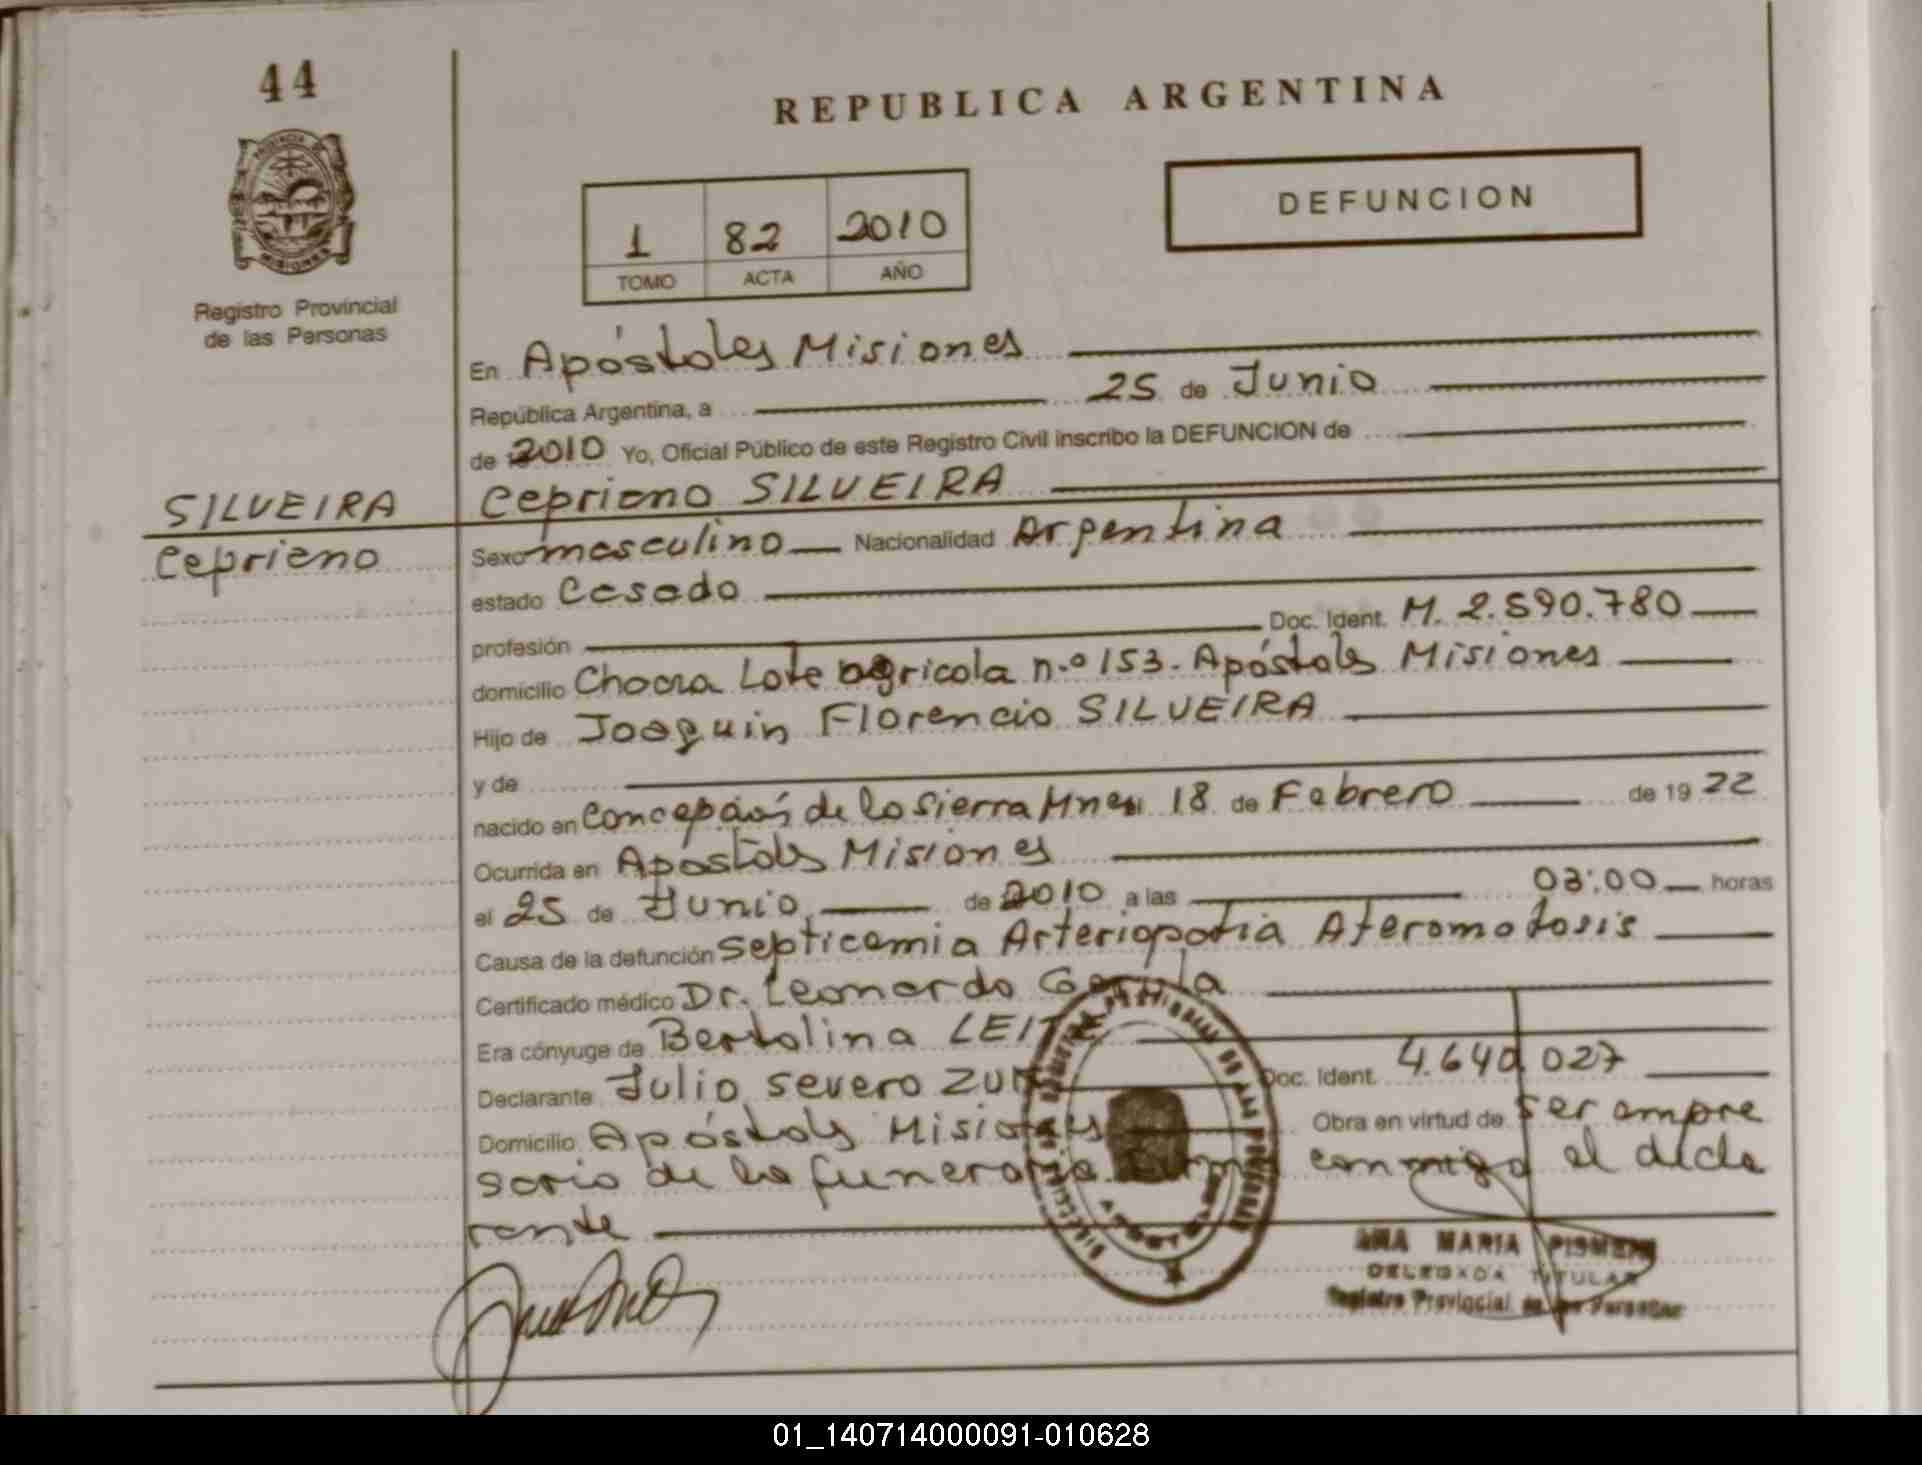 44
REPUBLICA ARGENTINA
DEFUNCION
1 82 2010
TOMO ACTA AÑO
Registro Provincial
de las Personas
En Apóstoles Misiones
República Argentina, a 25 de Junio
de 2010 Yo, Oficial Público de este Registro Civil inscribo la DEFUNCION de
SILVEIRA
Cepriano
Cepriano SILVEIRA
Sexo masculino Nacionalidad Argentina
estado Casado
profesión Doc. Ident. M. 2.590.780
domicilio Chacra Lote agricola n.º 153. Apóstoles Misiones
Hijo de Joaquin Florencio SILVEIRA
y de
nacido en Concepción de la Sierra Mnes 18 de Febrero de 1922
Ocurrida en Apóstoles Misiones
el 25 de Junio de 2010 a las 03:00 horas
Causa de la defunción Septicemia Arteriopatia Ateromatosis
Certificado médico Dr. Leonardo
Era cónyuge de Bertolina
Declarante Julio Severo Doc. Ident. 4.640.027
Domicilio Apóstoles Misiones Obra en virtud de ser empre
sario de la funeraria conmigo el decla
rante
ANA MARIA
DELEGADA TITULAR
Registro Provincial de las Personas
01_140714000091-010628